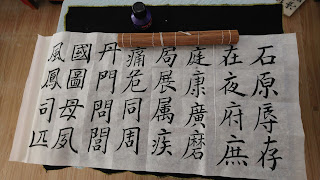 石原辱存
在夜府庶
庭康廣磨
局展属疾
痛危同周
丹門問
國圖母夙
風鳳司匹